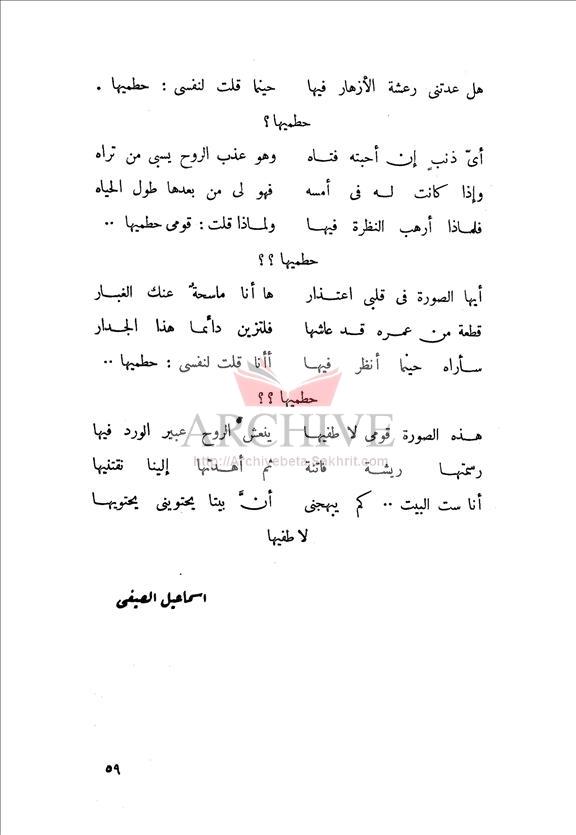 هل عدتنى رعشة الأزهار فيها حينما قلت لنفسى : حطميها .
حطميها ؟
أىّ ذنبٍ إن أحبته فتاه وهو عذب الروح يسبى من تراه
وإذا كانت له فى أمسه فهو لى من بعدها طول الحياه
فلماذا أرهب النظرة فيها ولماذا قلت : قومى حطميها ..
حطميها ؟؟
أيها الصورة فى قلبى اعتذار ها أنا ماسحةٌ عنك الغبار
قطعة من عمره قد عاشها فلتزين دائما هذا الجدار
سأراه حينما أنظر فيها أأنا قلت لنفسى : حطميها ..
حطميها ؟؟
ARCHIVE
هذه الصورة قومى لاطفيها ينعش الروح عبير الورد فيها
http://Archivebeta.Sakhrit.com
رسمتها ريشة فاتنة ثم أهدتها إلينا نقتنيها
أنا ست البيت .. كم يبهجنى أنَّ بيتا يحتوينى يحتويها
لاطفيها
اسماعيل الصيفى
٥٩